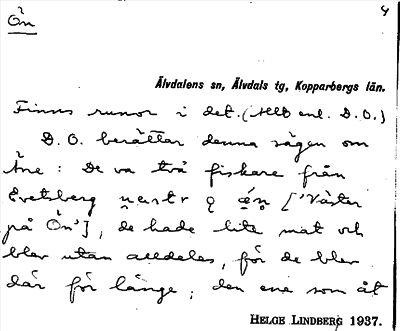 Ön
4
Älvdalens sn, Älvdals tg, Kopparbergs län.
Finns runor i det. (Medd enl. D.O.)
D. O. berättar denna sägen om
Åne: De va två fiskare från
Evertsberg næstr ǫ ǽn ['Väster
på Ön'], de hade lite mat och
blev utan alldeles, för de blev
där för länge; den ene som åt
HELGE LINDBERG 1937.